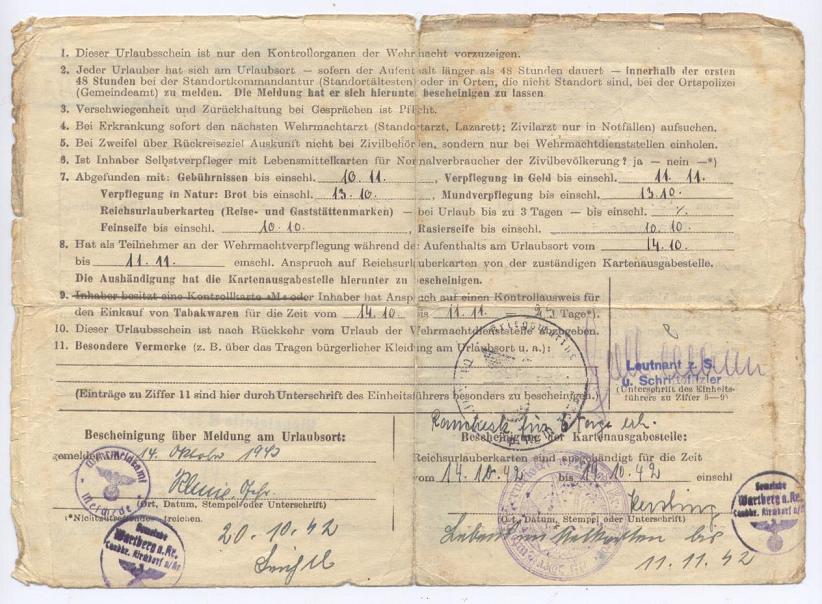 1. Dieser Urlaubsschein ist nur den Kontrollorganen der Wehrmacht vorzuzeigen.
2. Jeder Urlauber hat sich am Urlaubsort — sofern der Aufenthalt länger als 48 Stunden dauert — innerhalb der ersten
48 Stunden bei der Standortkommandantur (Standortältesten) oder in Orten, die nicht Standort sind, bei der Ortspolizei
(Gemeindeamt) zu melden. Die Meldung hat er sich hierunter bescheinigen zu lassen.
3. Verschwiegenheit und Zurückhaltung bei Gesprächen ist Pflicht.
4. Bei Erkrankung sofort den nächsten Wehrmachtarzt (Standortarzt, Lazarett; Zivilarzt nur in Notfällen) aufsuchen.
5. Bei Zweifel über Rückreiseziel Auskunft nicht bei Zivilbehörden, sondern nur bei Wehrmachtdienststellen einholen.
6. Ist Inhaber Selbstverpfleger mit Lebensmittelkarten für Normalverbraucher der Zivilbevölkerung? ja — nein —*)
7. Abgefunden mit: Gebührnissen bis einschl. 10.11., Verpflegung in Geld bis einschl. 11.11.
Verpflegung in Natur: Brot bis einschl. 13.10., Mundverpflegung bis einschl. 13.10.
Reichsurlauberkarten (Reise- und Gaststättenmarken) — bei Urlaub bis zu 3 Tagen — bis einschl.
Feinseife bis einschl. 10.10., Rasierseife bis einschl. 10.10.
8. Hat als Teilnehmer an der Wehrmachtverpflegung während des Aufenthalts am Urlaubsort vom 14.10.
bis 11.11. einschl. Anspruch auf Reichsurlauberkarten von der zuständigen Kartenausgabestelle.
Die Aushändigung hat die Kartenausgabestelle hierunter zu bescheinigen.
9. Inhaber besitzt eine Kontrollkarte »M« oder Inhaber hat Anspruch auf einen Kontrollausweis für
den Einkauf von Tabakwaren für die Zeit vom 14.10. bis 11.11. = Tage*).
10. Dieser Urlaubsschein ist nach Rückkehr vom Urlaub der Wehrmachtdienststelle abzugeben.
11. Besondere Vermerke (z. B. über das Tragen bürgerlicher Kleidung am Urlaubsort u. a.):
Leutnant z. S.
u. Schriftoffizier
(Unterschrift des Einheits-
führers zu Ziffer 5—9)
(Einträge zu Ziffer 11 sind hier durch Unterschrift des Einheitsführers besonders zu bescheinigen.)
für Tage erh.
Bescheinigung über Meldung am Urlaubsort:
gemeldet 14. Oktober 194
(Ort, Datum, Stempel oder Unterschrift)
(*Nichtzutreffendes streichen.
20.10.42
Gemeinde
Wartberg a. Kr.
Bescheinigung der Kartenausgabestelle:
Reichsurlauberkarten sind ausgehändigt für die Zeit
vom 14.10.42 bis 19.10.42 einschl
(Ort, Datum, Stempel oder Unterschrift)
Gemeinde
Wartberg a. Kr.
bis
11.11.42